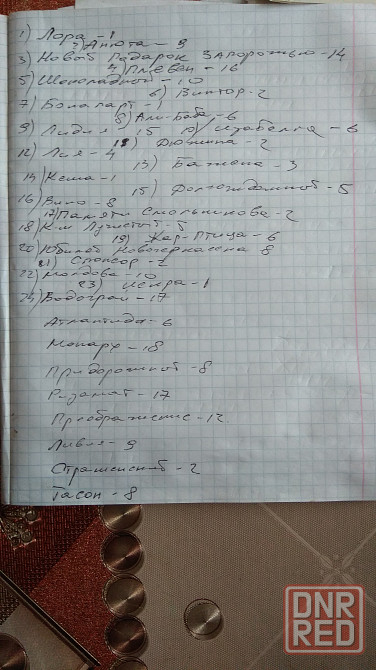 1) Лора - 1
2) Анюта - 9
3) Новый Подарок Запорожью - 14
4) Плевен - 16
5) Шоколадный - 10
6) Виктор - 2
7) Бонапарт - 1
8) Али-Баба - 6
9) Лидия 15 10) Изабелла - 6
11) Дюжина - 2
12) Лия - 4
13) Бажена - 3
14) Кеша - 1
15) Долгожданный - 5
16) Вино - 8
17) Памяти Смольникова - 2
18) К-ш Лучистый - 5
19) Жар-Птица - 6
20) Юбилей Новочеркасска 8
21) Спонсор - 2
22) Молдова - 10
23) Искра - 1
24) Водограй - 17
Атлантида - 6
Монарх - 18
Придорожный - 8
Ризамат - 17
Преображение - 12
Ливия - 9
Страшенский - 2
Тасон - 8
DNR
RED